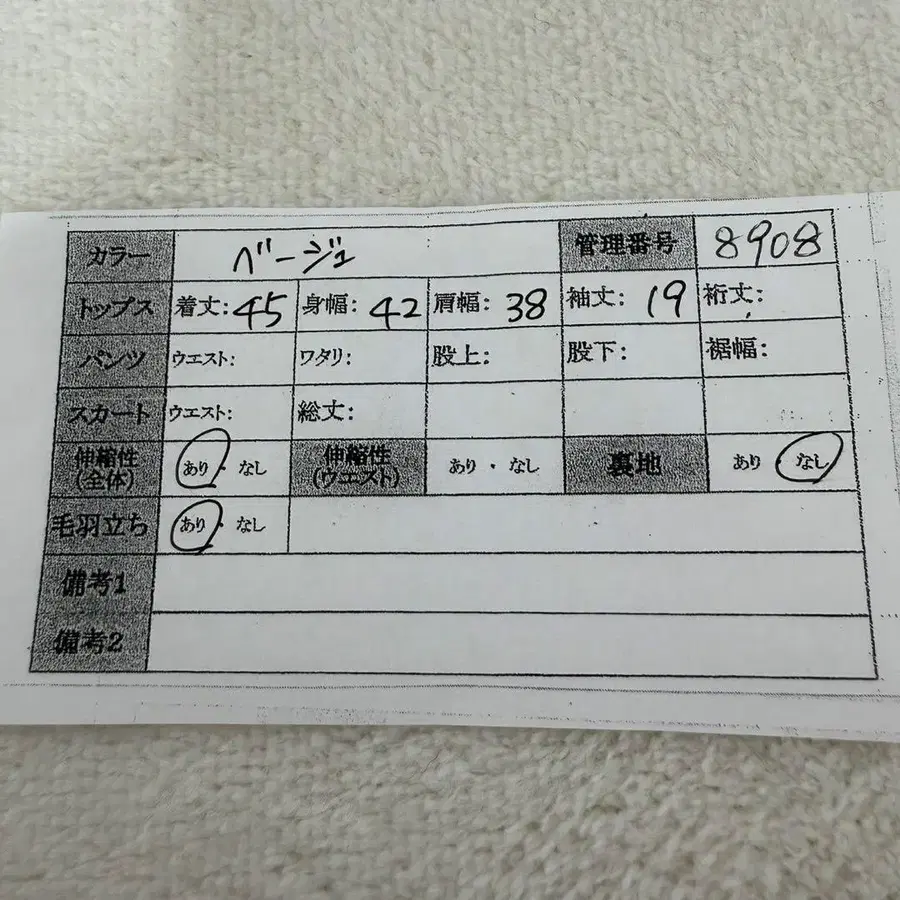 カラー ベージュ 管理番号 8908
トップス 着丈:45 身幅:42 肩幅:38 袖丈:19 裄丈:
パンツ ウエスト: ワタリ: 股上: 股下: 裾幅:
スカート ウエスト: 総丈:
伸縮性(全体) あり・なし 伸縮性(ウエスト) あり・なし 裏地 あり なし
毛羽立ち あり・なし
備考1
備考2